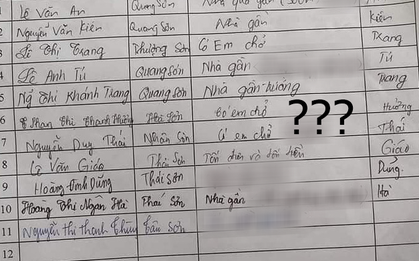 1 Lê Văn An Quang Sơn Nhà
2 Nguyễn Văn Kiên Quang Sơn Nhà gần Kiên
3 Lê Thị Trang Thượng Sơn Có Em chở Trang
4 Lê Anh Tú Quang Sơn Nhà gần Tú
5 Ng Thị Khánh Trang Quang Sơn Nhà gần trường Trang
6 Phan Thị Thanh Hường Hà Sơn Có em chở Hường
???
7 Nguyễn Duy Thái Nhân Sơn Có em chở Thái
8 Lê Văn Giáo Thái Sơn Tốn điện và tốn tiền Giáo
9 Hoàng Đình Dũng Thái Sơn Dũng
10 Hoàng Thị Ngân Hà Thái Sơn Nhà gần Hà
11 Nguyễn thị thanh Tân Sơn
12